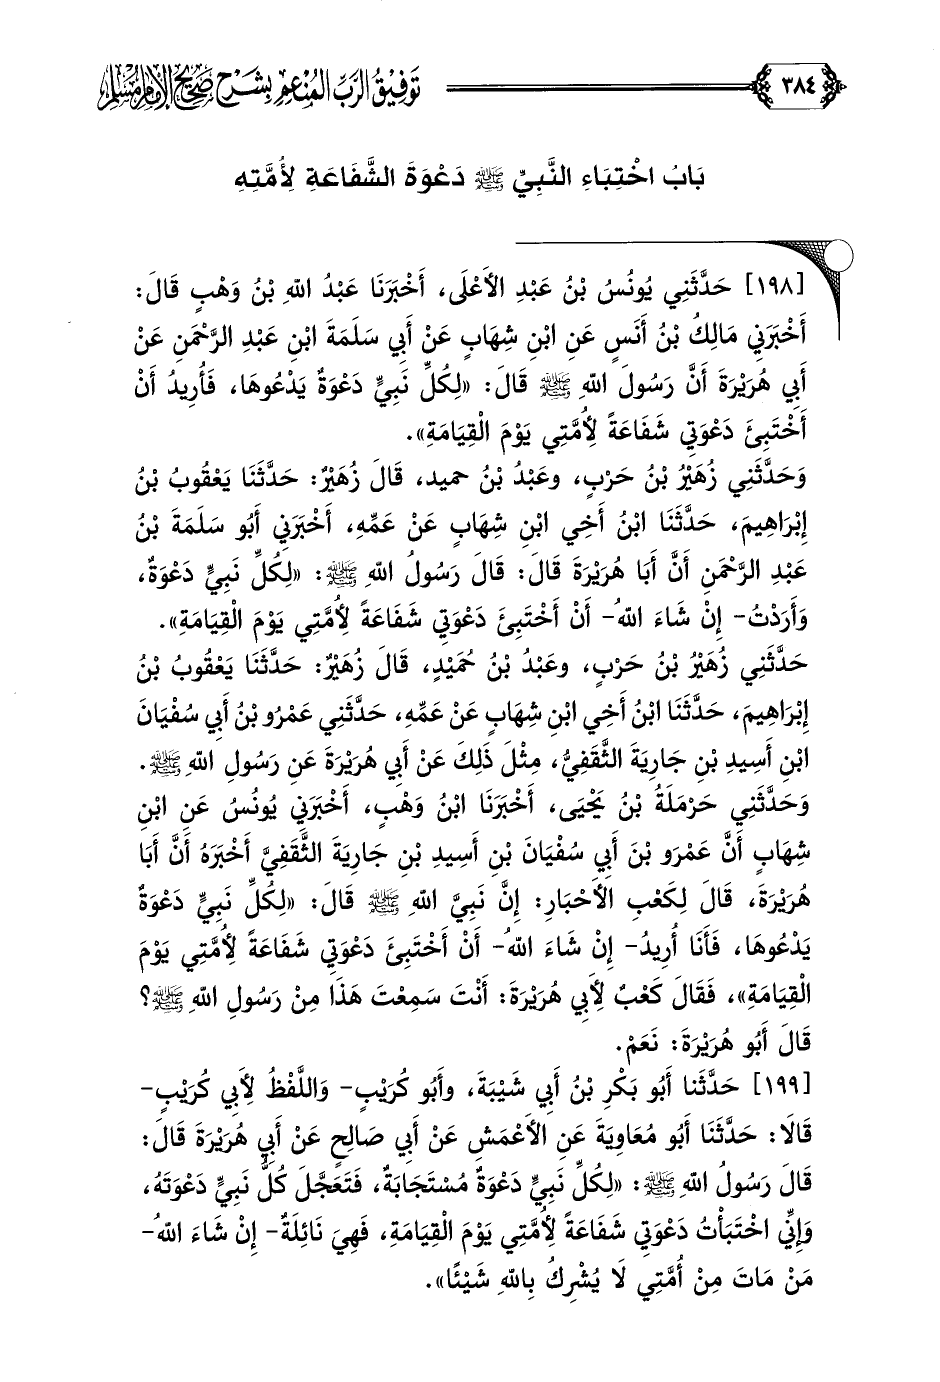 ٣٨٤ توفيق الرب المنعم بشرح صحيح الإمام مسلم
بَابُ اخْتِبَاءِ النَّبِيِّ ﷺ دَعْوَةَ الشَّفَاعَةِ لِأُمَّتِهِ
[١٩٨] حَدَّثَنِي يُونُسُ بْنُ عَبْدِ الأَعْلَى، أَخْبَرَنَا عَبْدُ اللهِ بْنُ وَهْبٍ قَالَ:
أَخْبَرَنِي مَالِكُ بْنُ أَنَسٍ عَنِ ابْنِ شِهَابٍ عَنْ أَبِي سَلَمَةَ ابْنِ عَبْدِ الرَّحْمَنِ عَنْ
أَبِي هُرَيْرَةَ أَنَّ رَسُولَ اللهِ ﷺ قَالَ: «لِكُلِّ نَبِيٍّ دَعْوَةٌ يَدْعُوهَا، فَأُرِيدُ أَنْ
أَخْتَبِئَ دَعْوَتِي شَفَاعَةً لِأُمَّتِي يَوْمَ الْقِيَامَةِ».
وَحَدَّثَنِي زُهَيْرُ بْنُ حَرْبٍ، وعَبْدُ بْنُ حميد، قَالَ زُهَيْرٌ: حَدَّثَنَا يَعْقُوبُ بْنُ
إِبْرَاهِيمَ، حَدَّثَنَا ابْنُ أَخِي ابْنِ شِهَابٍ عَنْ عَمِّهِ، أَخْبَرَنِي أَبُو سَلَمَةَ بْنُ
عَبْدِ الرَّحْمَنِ أَنَّ أَبَا هُرَيْرَةَ قَالَ: قَالَ رَسُولُ اللهِ ﷺ: «لِكُلِّ نَبِيٍّ دَعْوَةٌ،
وَأَرَدْتُ- إِنْ شَاءَ اللهُ- أَنْ أَخْتَبِئَ دَعْوَتِي شَفَاعَةً لِأُمَّتِي يَوْمَ الْقِيَامَةِ».
حَدَّثَنِي زُهَيْرُ بْنُ حَرْبٍ، وعَبْدُ بْنُ حُمَيْدٍ، قَالَ زُهَيْرٌ: حَدَّثَنَا يَعْقُوبُ بْنُ
إِبْرَاهِيمَ، حَدَّثَنَا ابْنُ أَخِي ابْنِ شِهَابٍ عَنْ عَمِّهِ، حَدَّثَنِي عَمْرُو بْنُ أَبِي سُفْيَانَ
ابْنِ أَسِيدِ بْنِ جَارِيَةَ الثَّقَفِيُّ، مِثْلَ ذَلِكَ عَنْ أَبِي هُرَيْرَةَ عَنِ رَسُولِ اللهِ ﷺ.
وَحَدَّثَنِي حَرْمَلَةُ بْنُ يَحْيَى، أَخْبَرَنَا ابْنُ وَهْبٍ، أَخْبَرَنِي يُونُسُ عَنِ ابْنِ
شِهَابٍ أَنَّ عَمْرَو بْنَ أَبِي سُفْيَانَ بْنِ أَسِيدِ بْنِ جَارِيَةَ الثَّقَفِيَّ أَخْبَرَهُ أَنَّ أَبَا
هُرَيْرَةَ، قَالَ لِكَعْبِ الأَحْبَارِ: إِنَّ نَبِيَّ اللهِ ﷺ قَالَ: «لِكُلِّ نَبِيٍّ دَعْوَةٌ
يَدْعُوهَا، فَأَنَا أُرِيدُ- إِنْ شَاءَ اللهُ- أَنْ أَخْتَبِئَ دَعْوَتِي شَفَاعَةً لِأُمَّتِي يَوْمَ
الْقِيَامَةِ»، فَقَالَ كَعْبٌ لِأَبِي هُرَيْرَةَ: أَنْتَ سَمِعْتَ هَذَا مِنْ رَسُولِ اللهِ ﷺ؟
قَالَ أَبُو هُرَيْرَةَ: نَعَمْ.
[١٩٩] حَدَّثَنا أَبُو بَكْرِ بْنُ أَبِي شَيْبَةَ، وأَبُو كُرَيْبٍ- وَاللَّفْظُ لِأَبِي كُرَيْبٍ-
قَالَا: حَدَّثَنَا أَبُو مُعَاوِيَةَ عَنِ الأَعْمَشِ عَنْ أَبِي صَالِحٍ عَنْ أَبِي هُرَيْرَةَ قَالَ:
قَالَ رَسُولُ اللهِ ﷺ: «لِكُلِّ نَبِيٍّ دَعْوَةٌ مُسْتَجَابَةٌ، فَتَعَجَّلَ كُلُّ نَبِيٍّ دَعْوَتَهُ،
وَإِنِّي اخْتَبَأْتُ دَعْوَتِي شَفَاعَةً لِأُمَّتِي يَوْمَ الْقِيَامَةِ، فَهِيَ نَائِلَةٌ- إِنْ شَاءَ اللهُ-
مَنْ مَاتَ مِنْ أُمَّتِي لَا يُشْرِكُ بِاللهِ شَيْئًا».